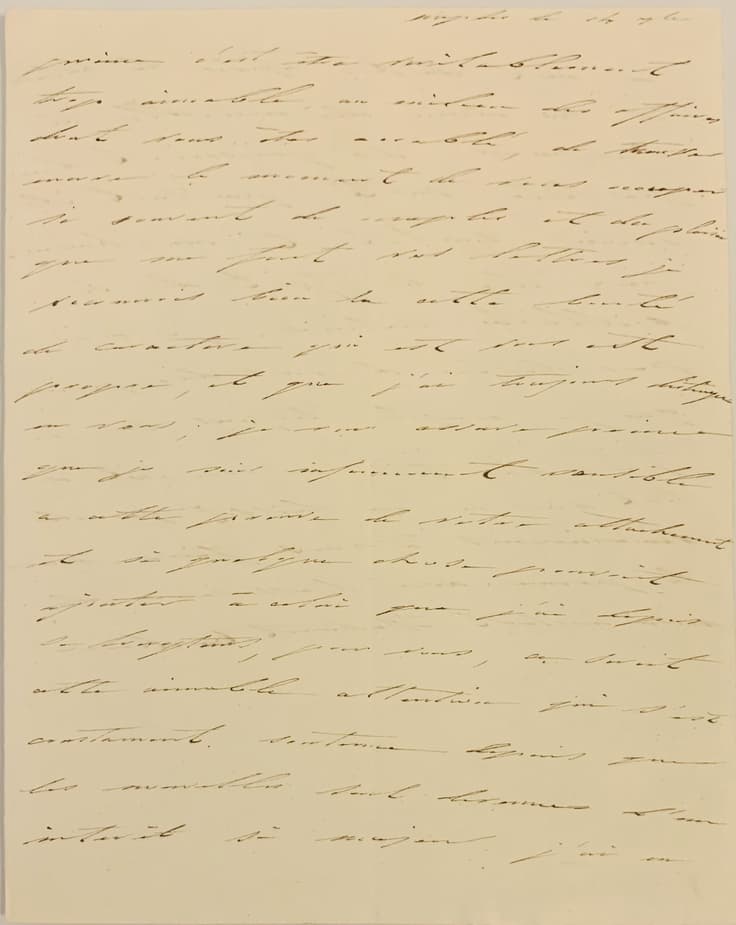 naples le 24 9bre
prince c'est être véritablement
trop aimable, au milieu des affaires
dont vous êtes accablé, de trouver
encore le moment de vous occuper
si souvent de naples et du plaisir
que me font vos lettres je
reconnois bien la cette bonté
de caractere qui est vous est
propre, et que j'ai toujours distingué
en vous, je vous assure prince
que je suis infiniment sensible
a cette preuve de votre attachement
et si quelque chose pouvoit
ajouter à celui que j'ai depuis
si longtems, pour vous, ce seroit
cette aimable attention qui s'est
constament soutenue depuis que
les nouvelles sont devenues d'un
intérêt si majeur. j'ai eu